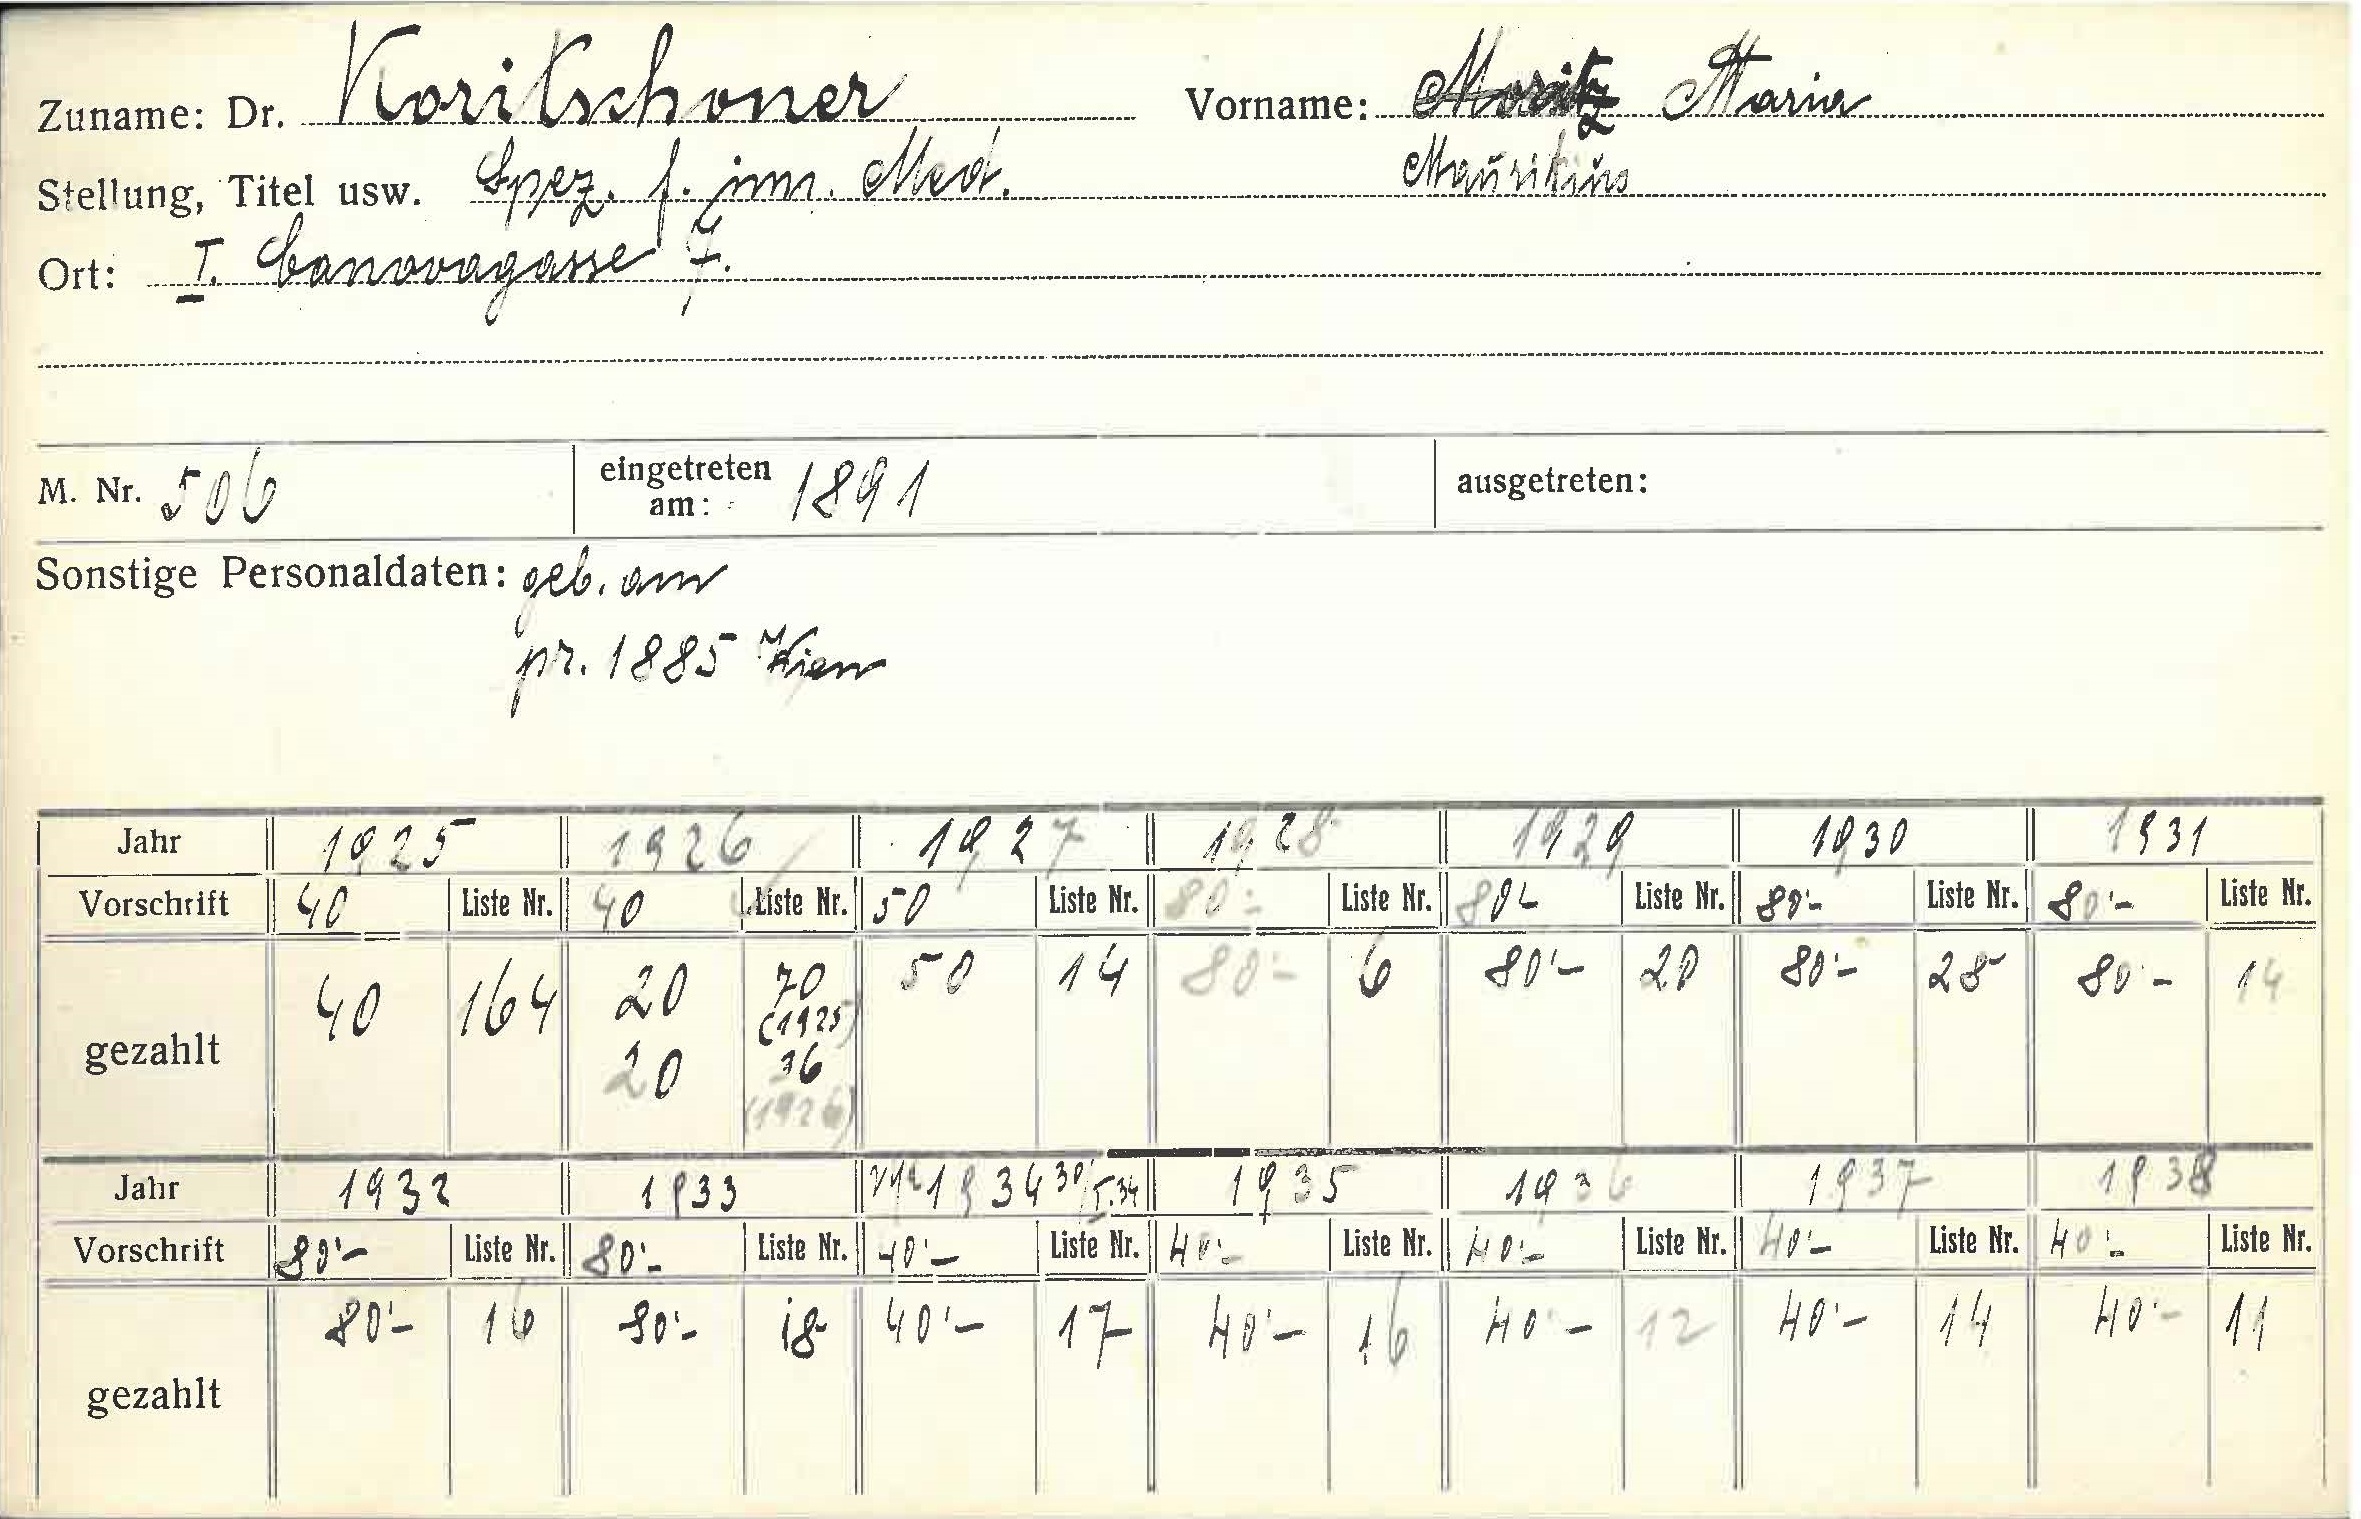 Zuname: Dr. Koritschoner Vorname: Moritz Maria
Stellung, Titel usw. Spez. f. inn. Med. Mauritius
Ort: I. Canovagasse 7.
M. Nr. 506 eingetreten am: 1891 ausgetreten:
Sonstige Personaldaten: geb. am
pr. 1885 Wien
Jahr 1925 1926 1927 1928 1929 1930 1931
Vorschrift 40 Liste Nr. 40 Liste Nr. 50 Liste Nr. 80.- Liste Nr. 80.- Liste Nr. 80'- Liste Nr. 80'- Liste Nr.
gezahlt 40 164 20 70 50 14 80'- 6 80'- 20 80'- 28 80'- 14
(1925)
20 36
(1926)
Jahr 1932 1933 1934 30/5.34 1935 1936 1937 1938
Vorschrift 80'- Liste Nr. 80'- Liste Nr. 40'- Liste Nr. 40'- Liste Nr. 40'- Liste Nr. 40'- Liste Nr. 40'- Liste Nr.
gezahlt 80'- 16 80'- 18 40'- 17 40'- 16 40'- 12 40'- 14 40'- 11